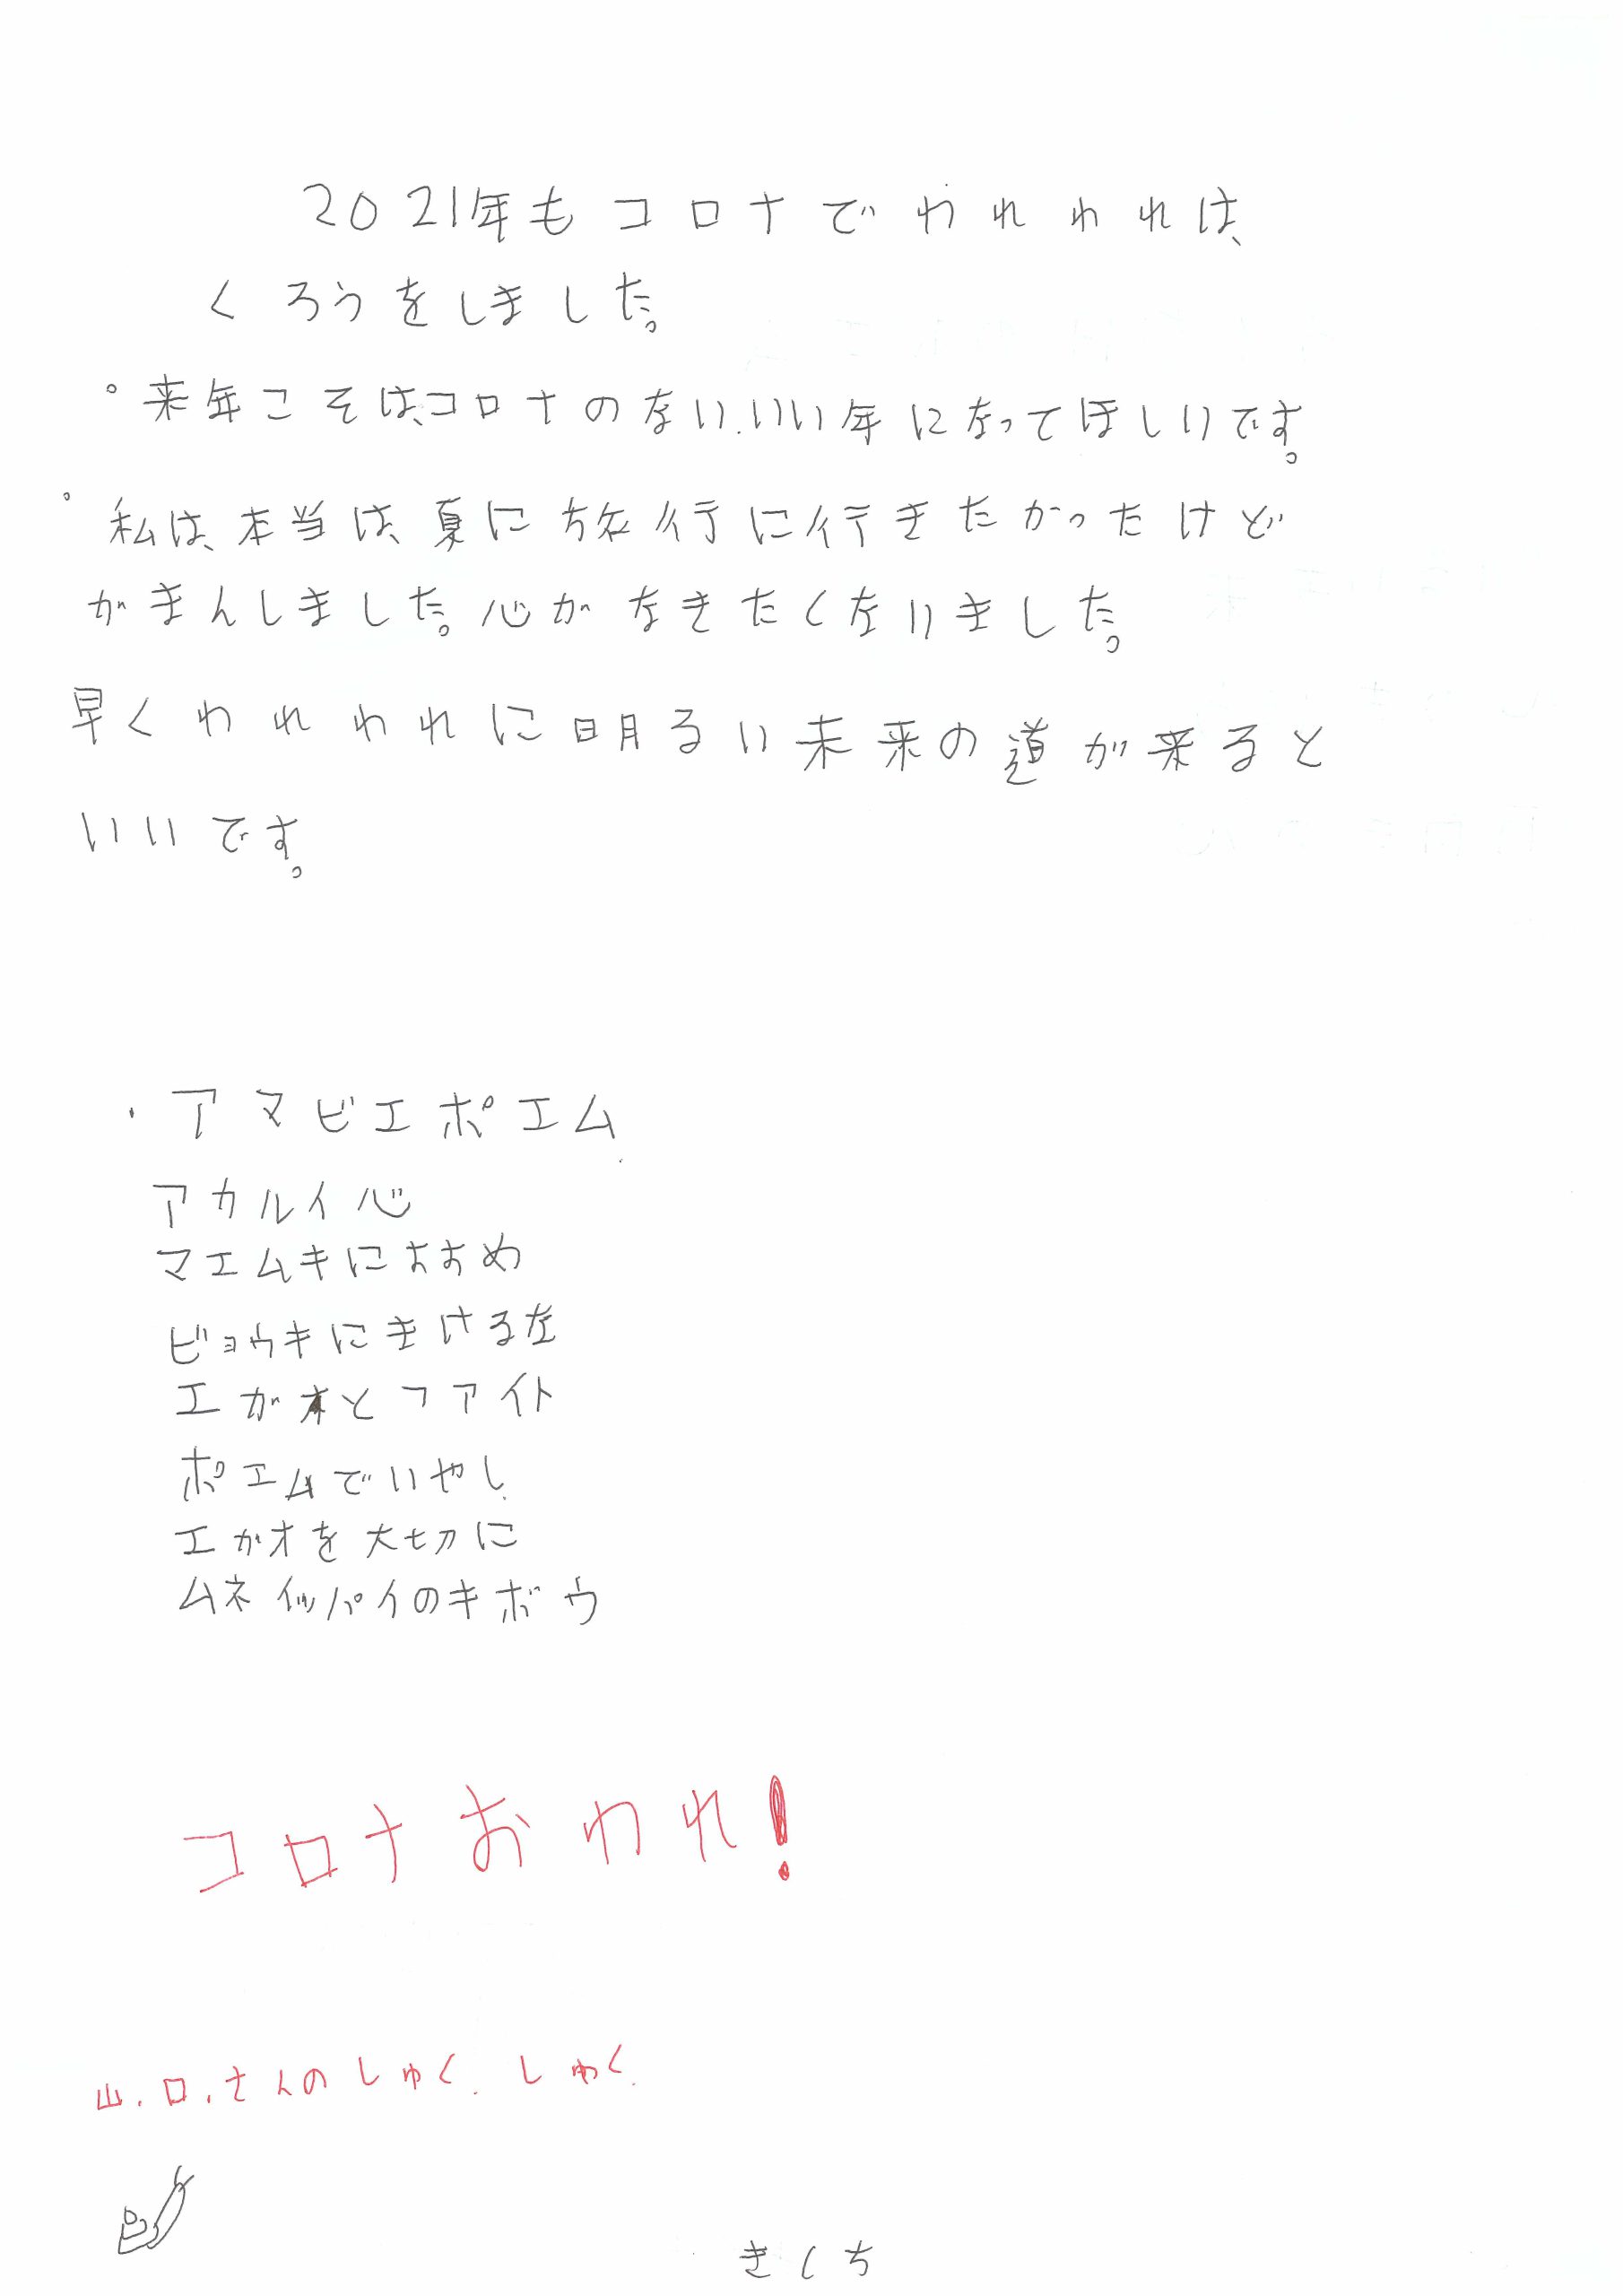 2021年もコロナでわれわれは、
くろうをしました。
°来年こそは、コロナのない、いい年になってほしいです。
°私は、本当は、夏に旅行に行きたかったけど
がまんしました。心がなきたくないました。
早くわれわれに明るい未来の道が来ると
いいです。
・アマビエポエム
アカルイ心
マエムキにおおめ
ビョウキにまけるな
エがオとファイト
ポエムでいやし
エがオを大切に
ムネイッパイのキボウ
コロナおわれ!
山.口.さんのしゅく.しゅく.
きくち